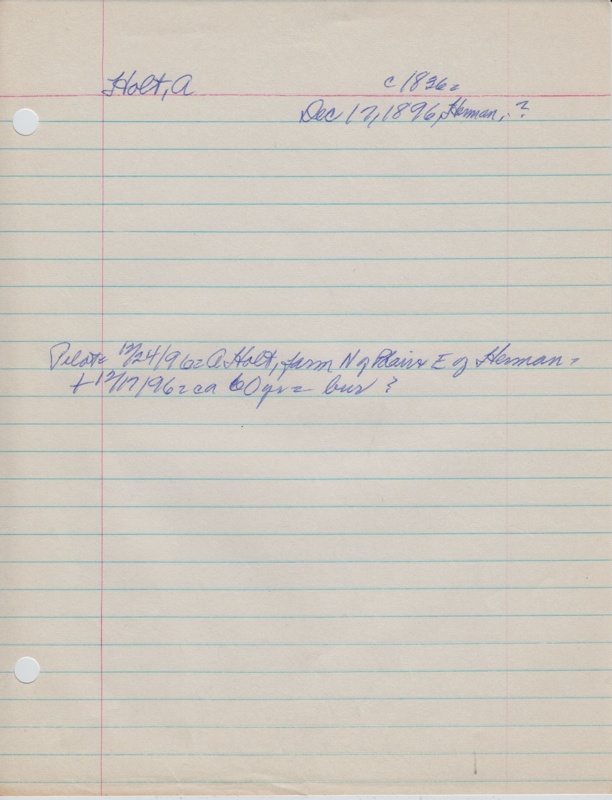 Holt, A c1836=
Dec 17, 1896, Herman, ?
Pilot= 12/24/96= A Holt, farm N of Blair & E of Herman=
+ 12/17/96= ca 60 yr= bur ?